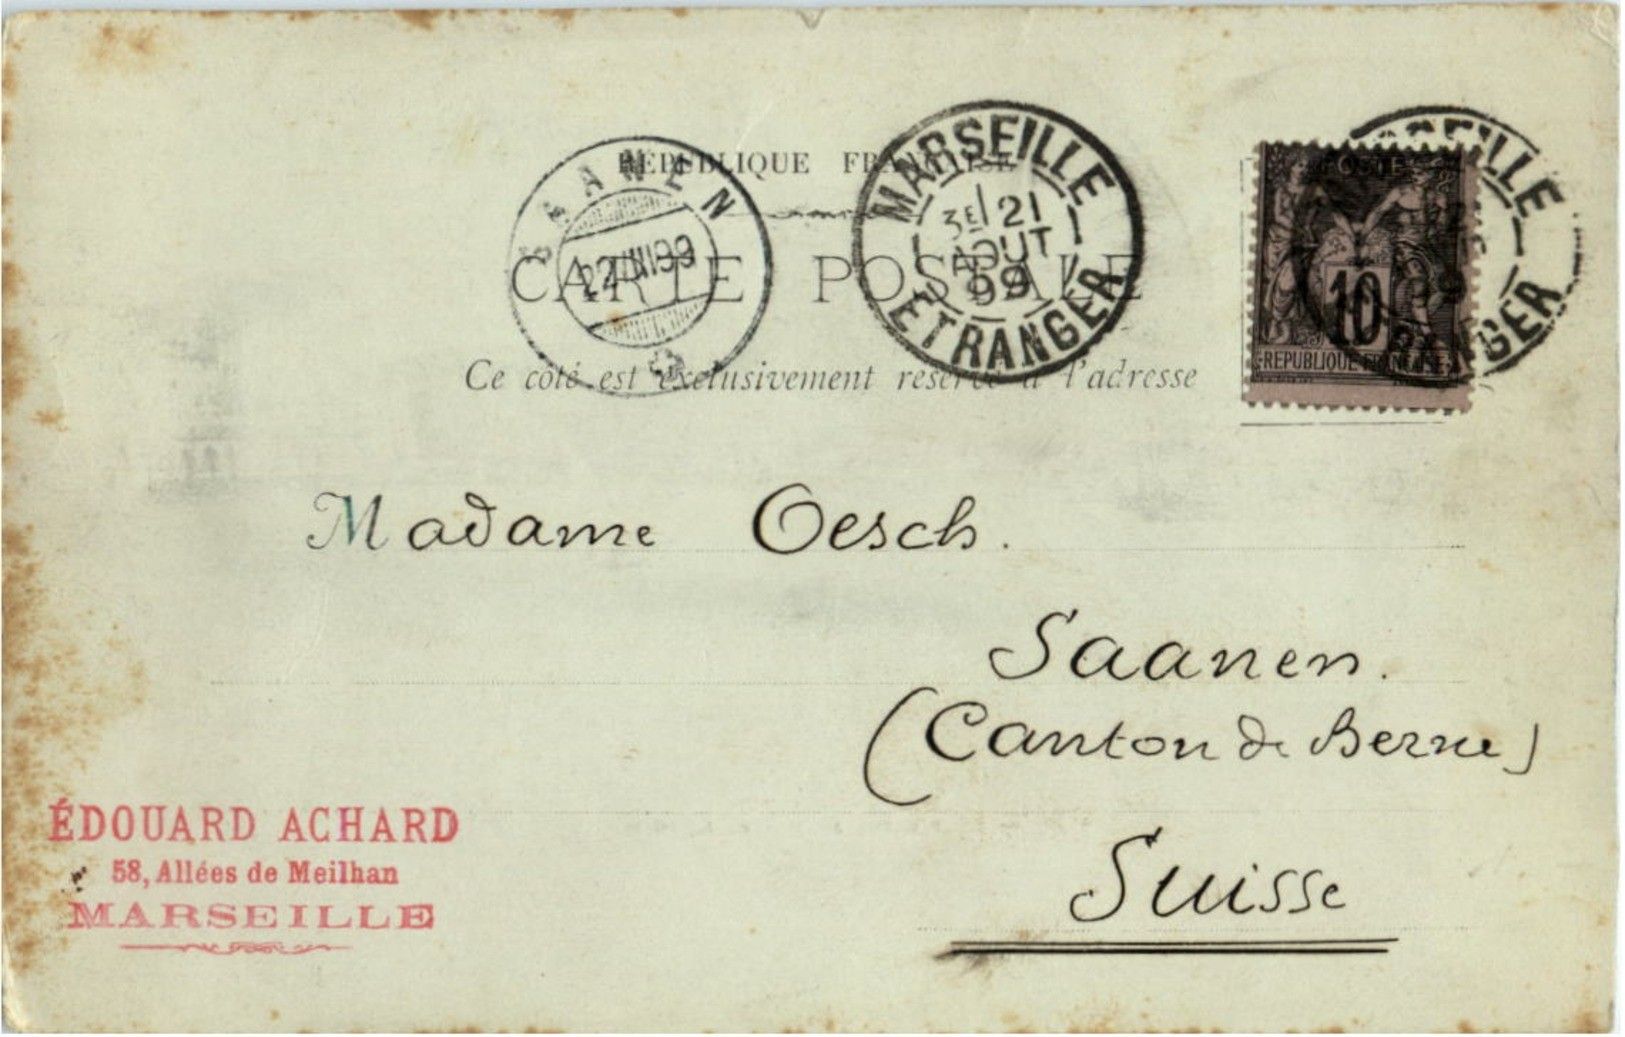 RÉPUBLIQUE FRANÇAISE
CARTE POSTALE
Ce côté est exclusivement réservé à l'adresse
SAANEN
22.VIII.99
MARSEILLE
3E 21
AOUT
99
ETRANGER
POSTE
10
REPUBLIQUE FRANÇAISE
MARSEILLE
ETRANGER
Madame Oesch.
Saanen.
(Canton de Berne)
Suisse
ÉDOUARD ACHARD
58, Allées de Meilhan
MARSEILLE